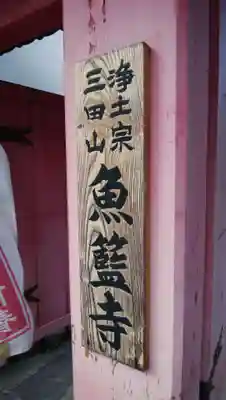 浄土宗
三田山
魚籃寺